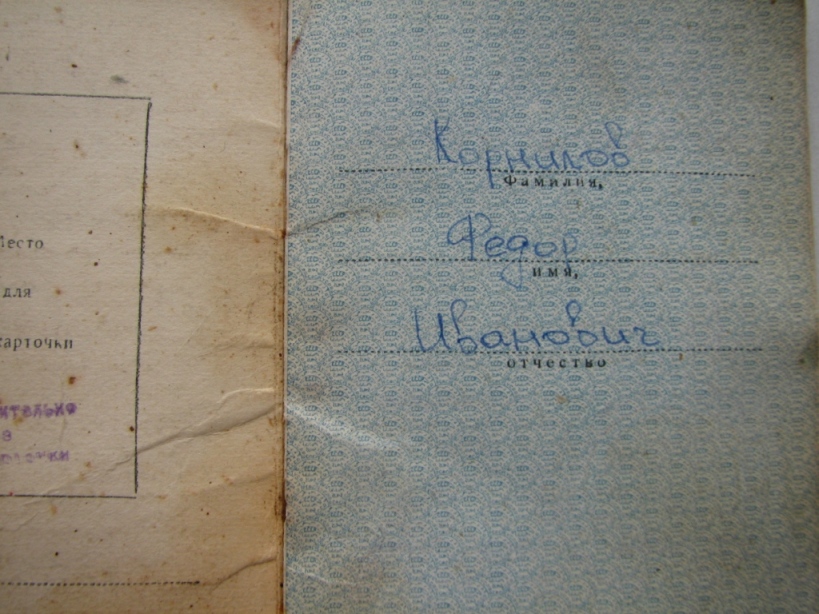 Место
для
карточки
Корнилов
Фамилия,
Федор
имя,
Иванович
отчество